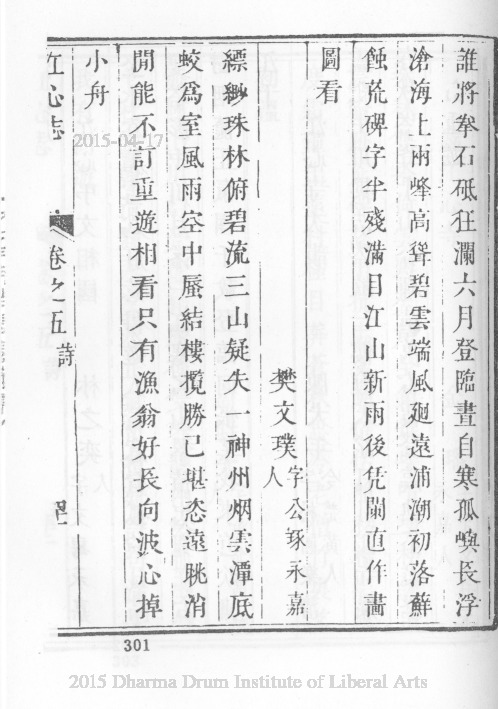 誰將拳石砥狂瀾六月登臨晝自寒孤嶼長浮
滄海上兩峰高聳碧雲端風廻遠浦潮初落蘚
蝕荒碑字半殘滿目江山新雨後凭闌直作畵
圖看
樊文璞字公琢永嘉人
縹緲珠林俯碧流三山疑失一神州烟雲潭底
蛟爲室風雨空中蜃結樓攬勝已堪恣遠眺消
閒能不訂重遊相看只有漁翁好長向波心掉
小舟
江心志
卷之五
詩
301
2015-04-17
2015 Dharma Drum Institute of Liberal Arts